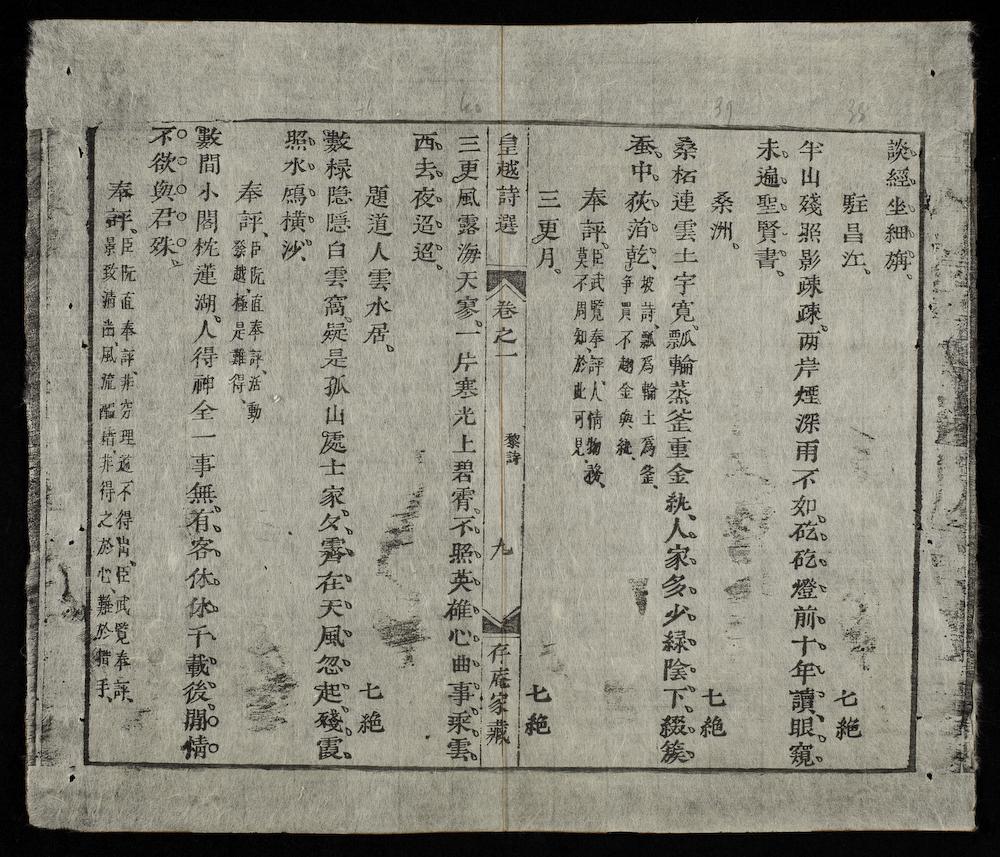 談經坐細旃
駐昌江 七絶
半山殘照影疎疎两岸煙深雨不如矻矻燈前十年讀眼窺
未遍聖賢書
桑洲 七絶
桑柘連雲土宇寛瓢輪蒸釜重金紈人家多少緑陰下綴簇
蚕中荻箔乾 坡詩瓢爲輪土爲釜
争買不趐金與紈
奉評 臣武覽奉評人情物務
莫不周知於此可見
三更月 七絶
皇越詩選 卷之一 黎詩 九 存庵家藏
三更風露海天寥一片寒光上碧霄不照英雄心曲事乘雲
西去夜迢迢
題道人雲水居 七絶
數椽隠隠白雲窩疑是孤山處士家久霽在天風忽起殘霞
照水鴈横沙
奉評 臣阮直奉評活動
發越極是難得
數間小閣枕蓮湖人得神全一事無有客休休千載後閒情
不欲與君殊
奉評 臣阮直奉評非窮理道不得尚臣武覽奉評
景致清出風流醖藉非得之於心難於措手